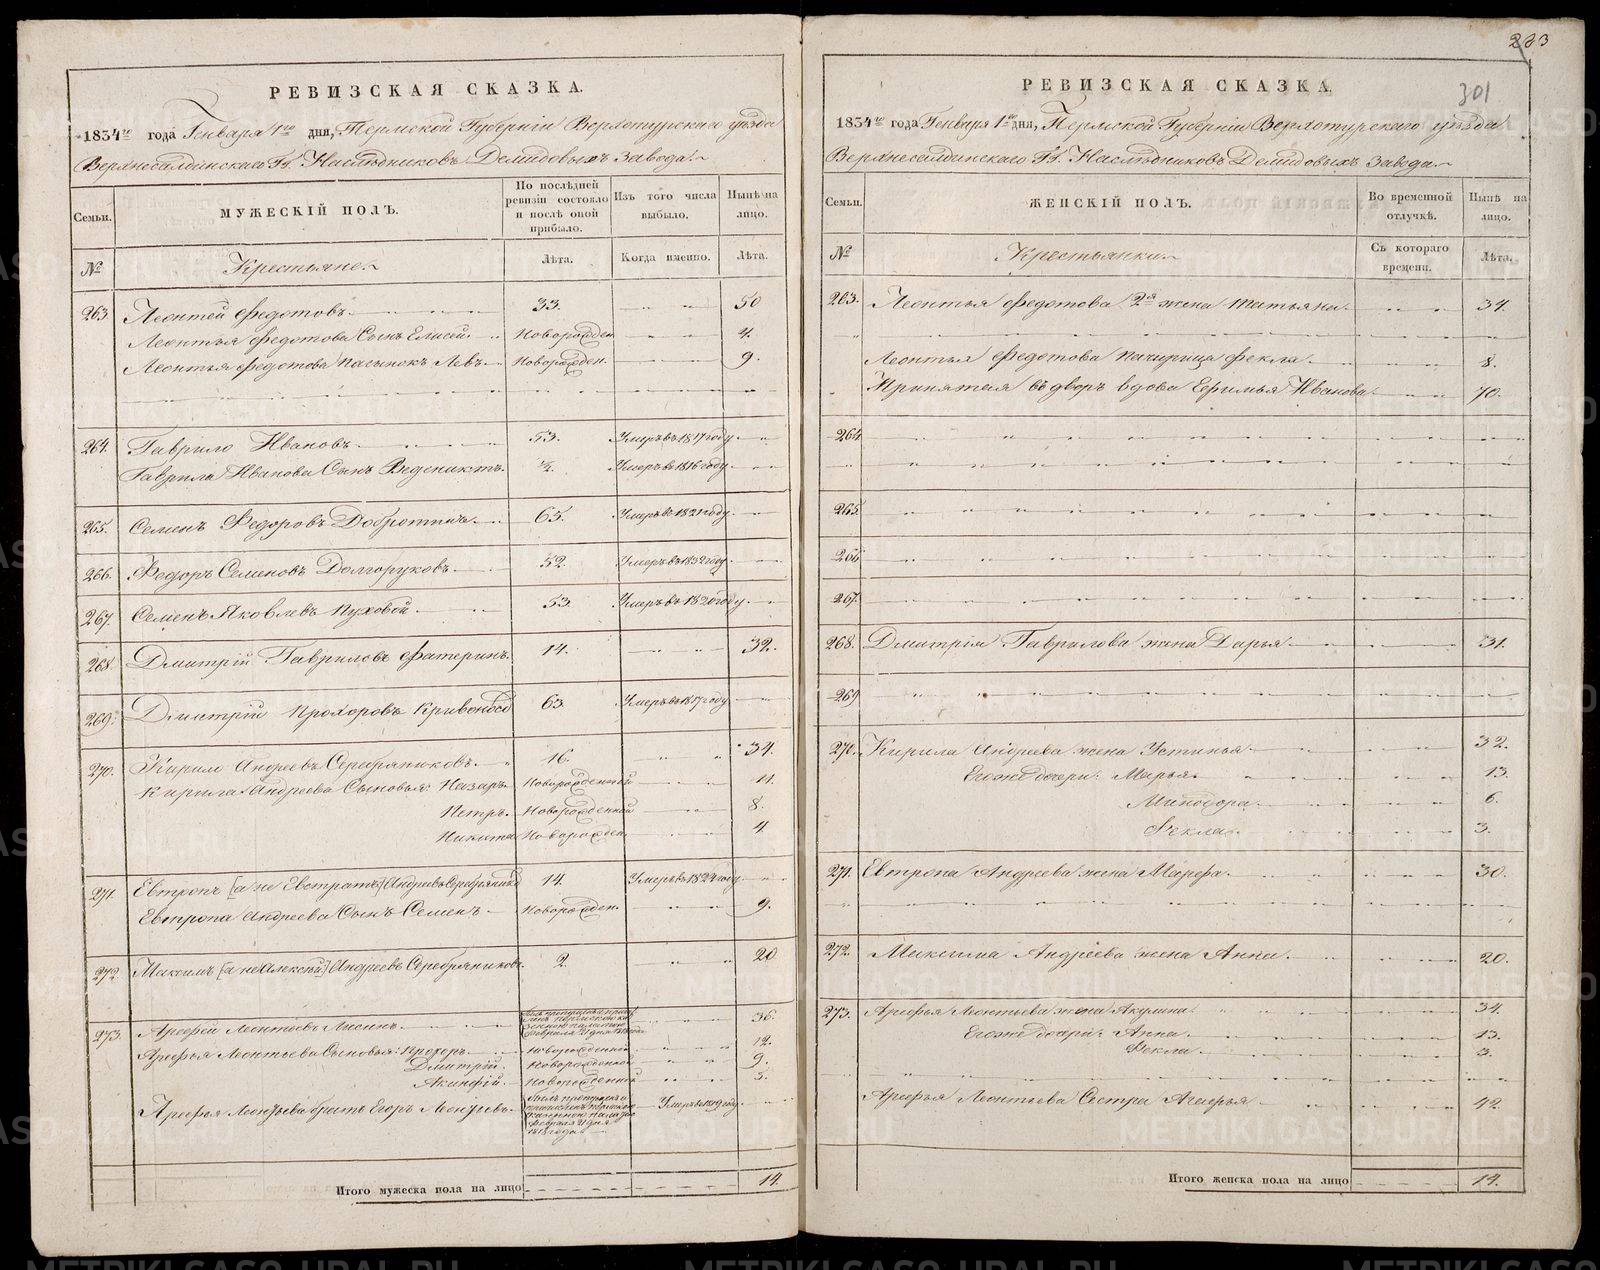 283
301
РЕВИЗСКАЯ СКАЗКА.
1834го года Генваря 1го дня, Пермской Губернiи Верхотурскаго уѣзда
Верхнесалдинскаго Гг. Наслѣдниковъ Демидовыхъ завода
Семьи.
МУЖЕСКIЙ ПОЛЪ.
По послѣдней ревизiи состояло и послѣ оной прибыло.
Изъ того числа выбыло.
Нынѣ на лицо.
№
Крестьяне
Лѣта.
Когда именно.
Лѣта.
263. Леонтей Федотовъ 33. 50
Леонтья Федотова Сынъ Елисей Новорожден 4.
Леонтья Федотова пасынокъ Левъ Новорожден. 9.
264. Гаврило Ивановъ 53. Умеръ въ 1817 году
Гаврила Иванова Сынъ Веденихтъ ½. Умеръ въ 1816 году
265. Семенъ Федоровъ 65. Умеръ въ 1821 году
266. Федоръ Семеновъ Долгоруковъ 52. Умеръ въ 1832 году
267. Семенъ Яковлевъ Пуховой 53. Умеръ въ 1820 году
268. Дмитрiй Гавриловъ Фатеринъ 14. 32.
269. Дмитрiй Прохоровъ Кривоносо 63. Умеръ въ 1817 году
270. Кирило Андреевъ Серебряниковъ 16. 34.
Кирила Андреева Сыновья: Назаръ Новорожденной 11.
Петръ Новорожденной 8.
Никита Новорожден. 4
271. Евтропъ [а не Евстратъ] Андреевъ Серебряников 14. Умеръ въ 1824 году
Евтропа Андреева Сынъ Семенъ Новорожден. 9.
272. Максимъ [а не Алексѣй] Андреевъ Серебряниковъ 2. 20
273. Арефей Леонтьевъ Лисинъ 36.
Арефья Леонтьева Сыновья: Прохоръ Новорожденной 12.
Дмитрiй Новорожденной 9.
Акинфiй Новорожденной 5.
Арефья Леонтьева братъ Егоръ Леонтьевъ Умеръ въ 1819 году
Итого мужеска пола на лицо 14.
РЕВИЗСКАЯ СКАЗКА.
1834го года Генваря 1го дня, Пермской Губернiи Верхотурскаго уѣзда
Верхнесалдинскаго Гг. Наслѣдниковъ Демидовыхъ завода
Семьи.
ЖЕНСКIЙ ПОЛЪ.
Во временной отлучкѣ.
Нынѣ на лицо.
№
Крестьянки
Съ котораго времени.
Лѣта.
263. Леонтья Федотова 2я жена Татьяна 34.
Леонтья Федотова падчерица Фекла 8.
Принятая въ дворъ вдова Ефимья Иванова 70.
264
265
266
267
268. Дмитрiя Гаврилова жена Дарья 31.
269
270. Кирила Андреева жена Устинья 32.
Егоже дочери: Марья 13.
Минодора 6.
Фекла 3.
271. Евтропа Андреева жена Марфа 30.
272. Максима Андреева жена Анна 20.
273. Арефья Леонтьева жена Акулина 34.
Егоже дочери: Анна 13.
Фекла 3.
Арефья Леонтьева Сестра Агафья 42.
Итого женска пола на лицо 14.
METRIKI.GASO-URAL.RU